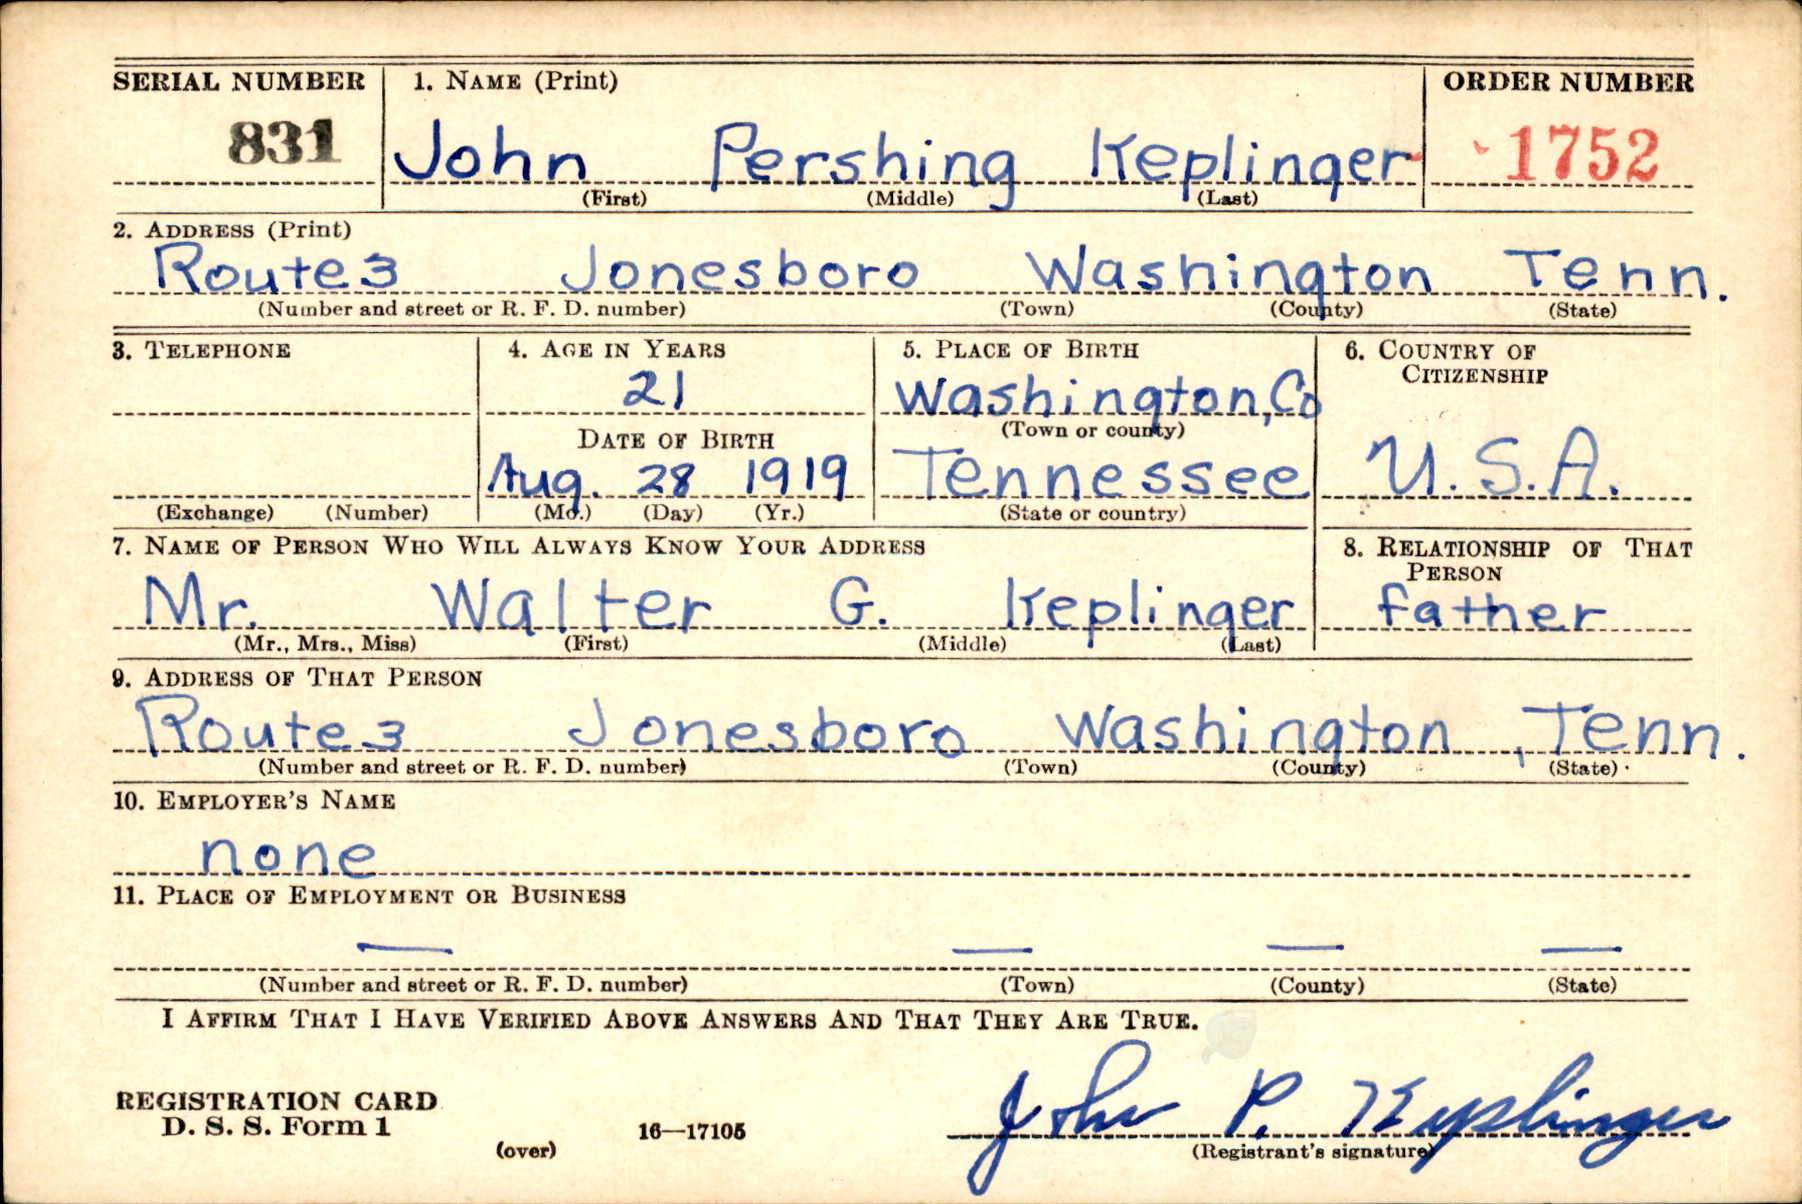 SERIAL NUMBER 1. NAME (Print) ORDER NUMBER
831 John Pershing Keplinger 1752
(First) (Middle) (Last)
2. ADDRESS (Print)
Route 3 Jonesboro Washington Tenn.
(Number and street or R. F. D. number) (Town) (County) (State)
3. TELEPHONE 4. AGE IN YEARS 5. PLACE OF BIRTH 6. COUNTRY OF CITIZENSHIP
21 Washington, Co
DATE OF BIRTH (Town or county)
Aug. 28 1919 Tennessee U.S.A.
(Exchange) (Number) (Mo.) (Day) (Yr.) (State or country)
7. NAME OF PERSON WHO WILL ALWAYS KNOW YOUR ADDRESS 8. RELATIONSHIP OF THAT PERSON
Mr. Walter G. Keplinger father
(Mr., Mrs., Miss) (First) (Middle) (Last)
9. ADDRESS OF THAT PERSON
Route 3 Jonesboro Washington, Tenn.
(Number and street or R. F. D. number) (Town) (County) (State)
10. EMPLOYER'S NAME
none
11. PLACE OF EMPLOYMENT OR BUSINESS
— — — —
(Number and street or R. F. D. number) (Town) (County) (State)
I AFFIRM THAT I HAVE VERIFIED ABOVE ANSWERS AND THAT THEY ARE TRUE.
REGISTRATION CARD
D. S. S. Form 1 John P. Keplinger
(over) 16—17105 (Registrant's signature)